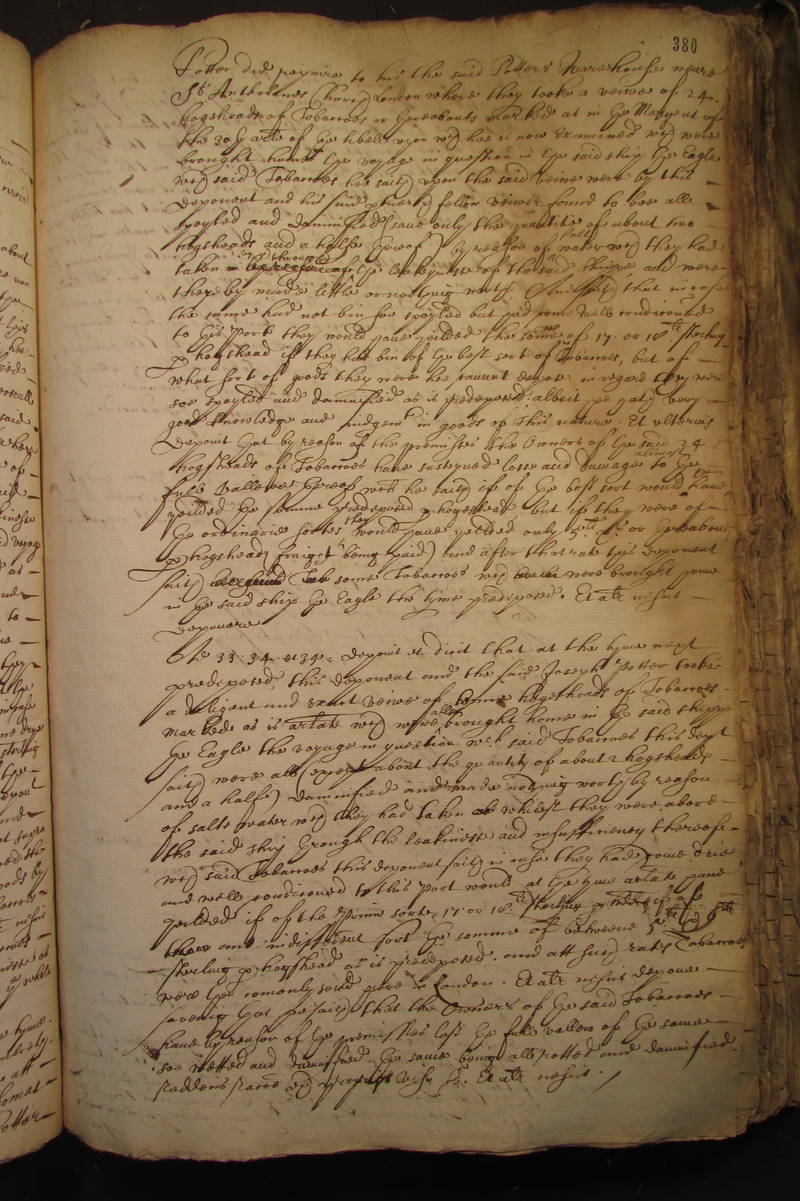 380
Potter did repaire to his the said Potters Warehouse neare
St Antholines Church London where they tooke a veiwe of 24
hogsheads of Tobaccoes or thereabouts marked as in the Margent of
the 30th arle of the libell upon wch hee is now examined wch were
brought home the voyage in question in the said ship the Eagle
wch said Tobaccoes hee saith upon the said veiwe were by this
deponent and his said fellow veiwer found to bee all
spoyled and damnified (save only the quantitie of about two
hogsheads and a halfe thereof) by reason of salt water wch they had
taken in through the leakynesse of the said shippe and were
thereby made little or nothing worth And saith that in case
the same had not bin soe spoyled but had come well conditioned
to this Port they would have yeilded the somme of 17 or 18 li sterling
p hogshead if they had bin of the best sort of Tobaccoes, but of
what sort of goods they were hee cannot depose in regard they were
soe spoyled and damnified as is predeposed, albeit he hath very
good knowledge and judgemt in goods of this nature. Et ulterius
deponit that by reason of the premisses the Owners of the said 24
hogsheads of Tobaccoes have susteyned losse and damage to almost the
full vallewe thereof wch he saith if of the best sort would have
yeilded the somme predeposed p hogshead but if they were of
the ordinarie sortes they would have yeilded only 5 li or thereabouts
p hogshead, fraight being paid, and after that rate this deponent
saith some Tobaccoes wch were brought home
in the said ship the Eagle the tyme predeposed. Et alr nescit
deponere
Ad 33 34 et 34. deponit et dicit that at the tyme next
predeposed, this deponent and the said Joseph Potter tooke
a diligent and exact veiwe of some hogsheads of Tobaccoes
marked as is arlate wch were all brought home in the said shippe
the Eagle the voyage in question wch said Tobaccoes this dept
saith were all (except about the quantity of about 2 hogsheads
and a halfe) damnified and made nothing worth by reason
of salte water wch they had taken whilest they were aboard
the said ship through the leakinesse and insufficiency thereof
wch said Tobaccoes this deponent saith in case they had come drie
and well conditioned to this Port would at the tyme arlate have
yeilded if of the prime sorte, 17 or 18 li sterling p hogshead if of
and indifferent sort the somme of betweene 5 li and 6 li
sterling p hogshead as is predeposed. and att such rates Tobaccoes
were then comonly sould here in London. Et alr nescit deponere
saveing that he saith that the Owners of the said Tobaccoes
have by reason of the premisses lost the full vallew of the same
soe wetted and damnified the same being all rotted and damnified.
reddens rationem ex proprio visu &c. Et alr nescit.